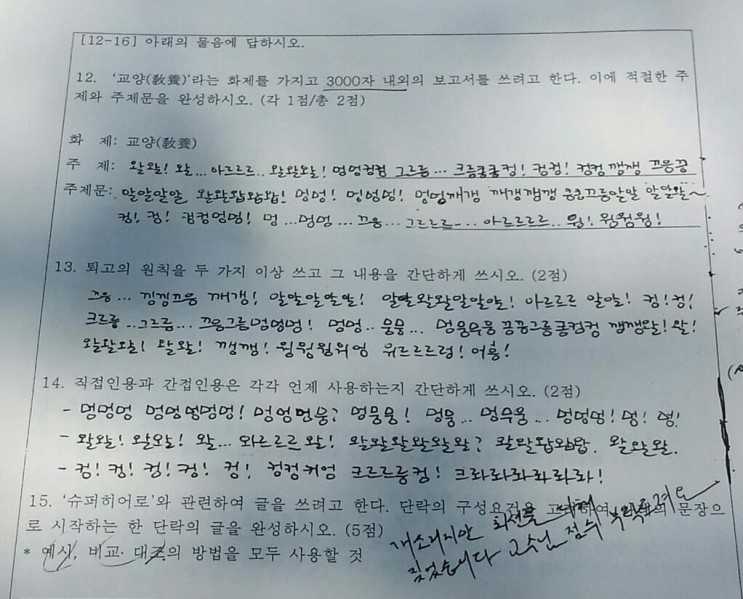 [12-16] 아래의 물음에 답하시오.
12. '교양(敎養)'라는 화제를 가지고 3000자 내외의 보고서를 쓰려고 한다. 이에 적절한 주
제와 주제문을 완성하시오. (각 1점/총 2점)
화 제: 교양(敎養)
주 제: 왈왈! 왈... 아르르르.. 왈왈왈! 멍멍컹컹 그르릉... 크릉쿵쿵컹! 컹컹! 컹컹 깽깽 끄응끙
주제문: 알알알알, 왈왈왈왈왈! 멍멍! 멍멍멍! 멍멍깨갱 깨갱깽갱
컹! 컹! 컹컹멍멍! 멍...멍멍... 끄응... 그르르르... 아르르르르.. 웡! 웡웡웡!
13. 퇴고의 원칙을 두 가지 이상 쓰고 그 내용을 간단하게 쓰시오. (2점)
끄응... 낑낑끄응 깨갱! 알알알알알! 알알왈왈알알알! 아르르르 알알! 컹!컹!
크르릉..그르릉... 끄응그릉멍멍멍! 멍멍..
왈왈왈! 왈왈! 깽깽! 웡웡웡워엉 위르르르렁! 어흥!
14. 직접인용과 간접인용은 각각 언제 사용하는지 간단하게 쓰시오. (2점)
- 멍멍멍 멍멍멍멍멍!
- 왈왈! 왈왈! 왈... 와르르르 왈! 왈왈왈왈왈왈왈? 왈왈왈왈왈, 왈왈왈.
- 컹! 컹! 컹! 컹! 컹! 컹컹커엉 크르르릉컹! 크롸롸롸롸롸롸!
15. '슈퍼히어로'와 관련하여 글을 쓰려고 한다. 단락의 구성요건을 고려하여 문장으
로 시작하는 한 단락의 글을 완성하시오. (5점)
* 예시, 비교·대조의 방법을 모두 사용할 것
개소리지만 최선을 다해
짖었습니다 교수님 점수 부탁드려요